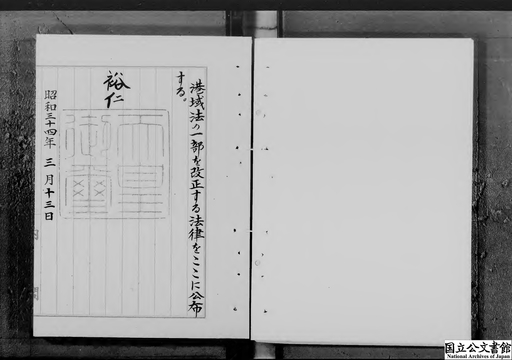 港域法の一部を改正する法律をここに公布
する。
裕仁
天皇
御璽
昭和三十四年三月十三日
国立公文書館
National Archives of Japan